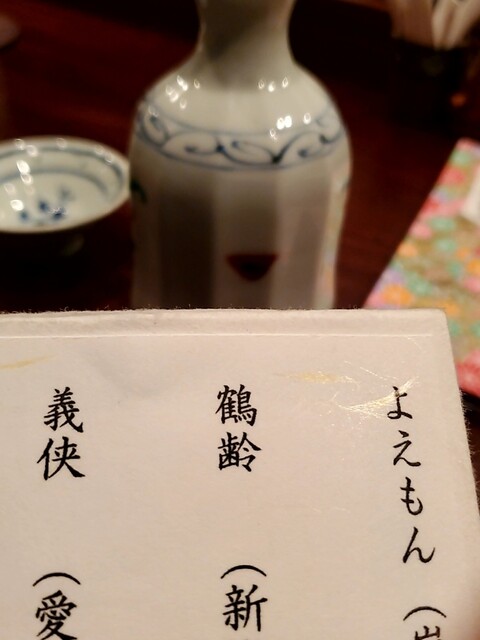 よえもん（
鶴齢（新
義侠（愛